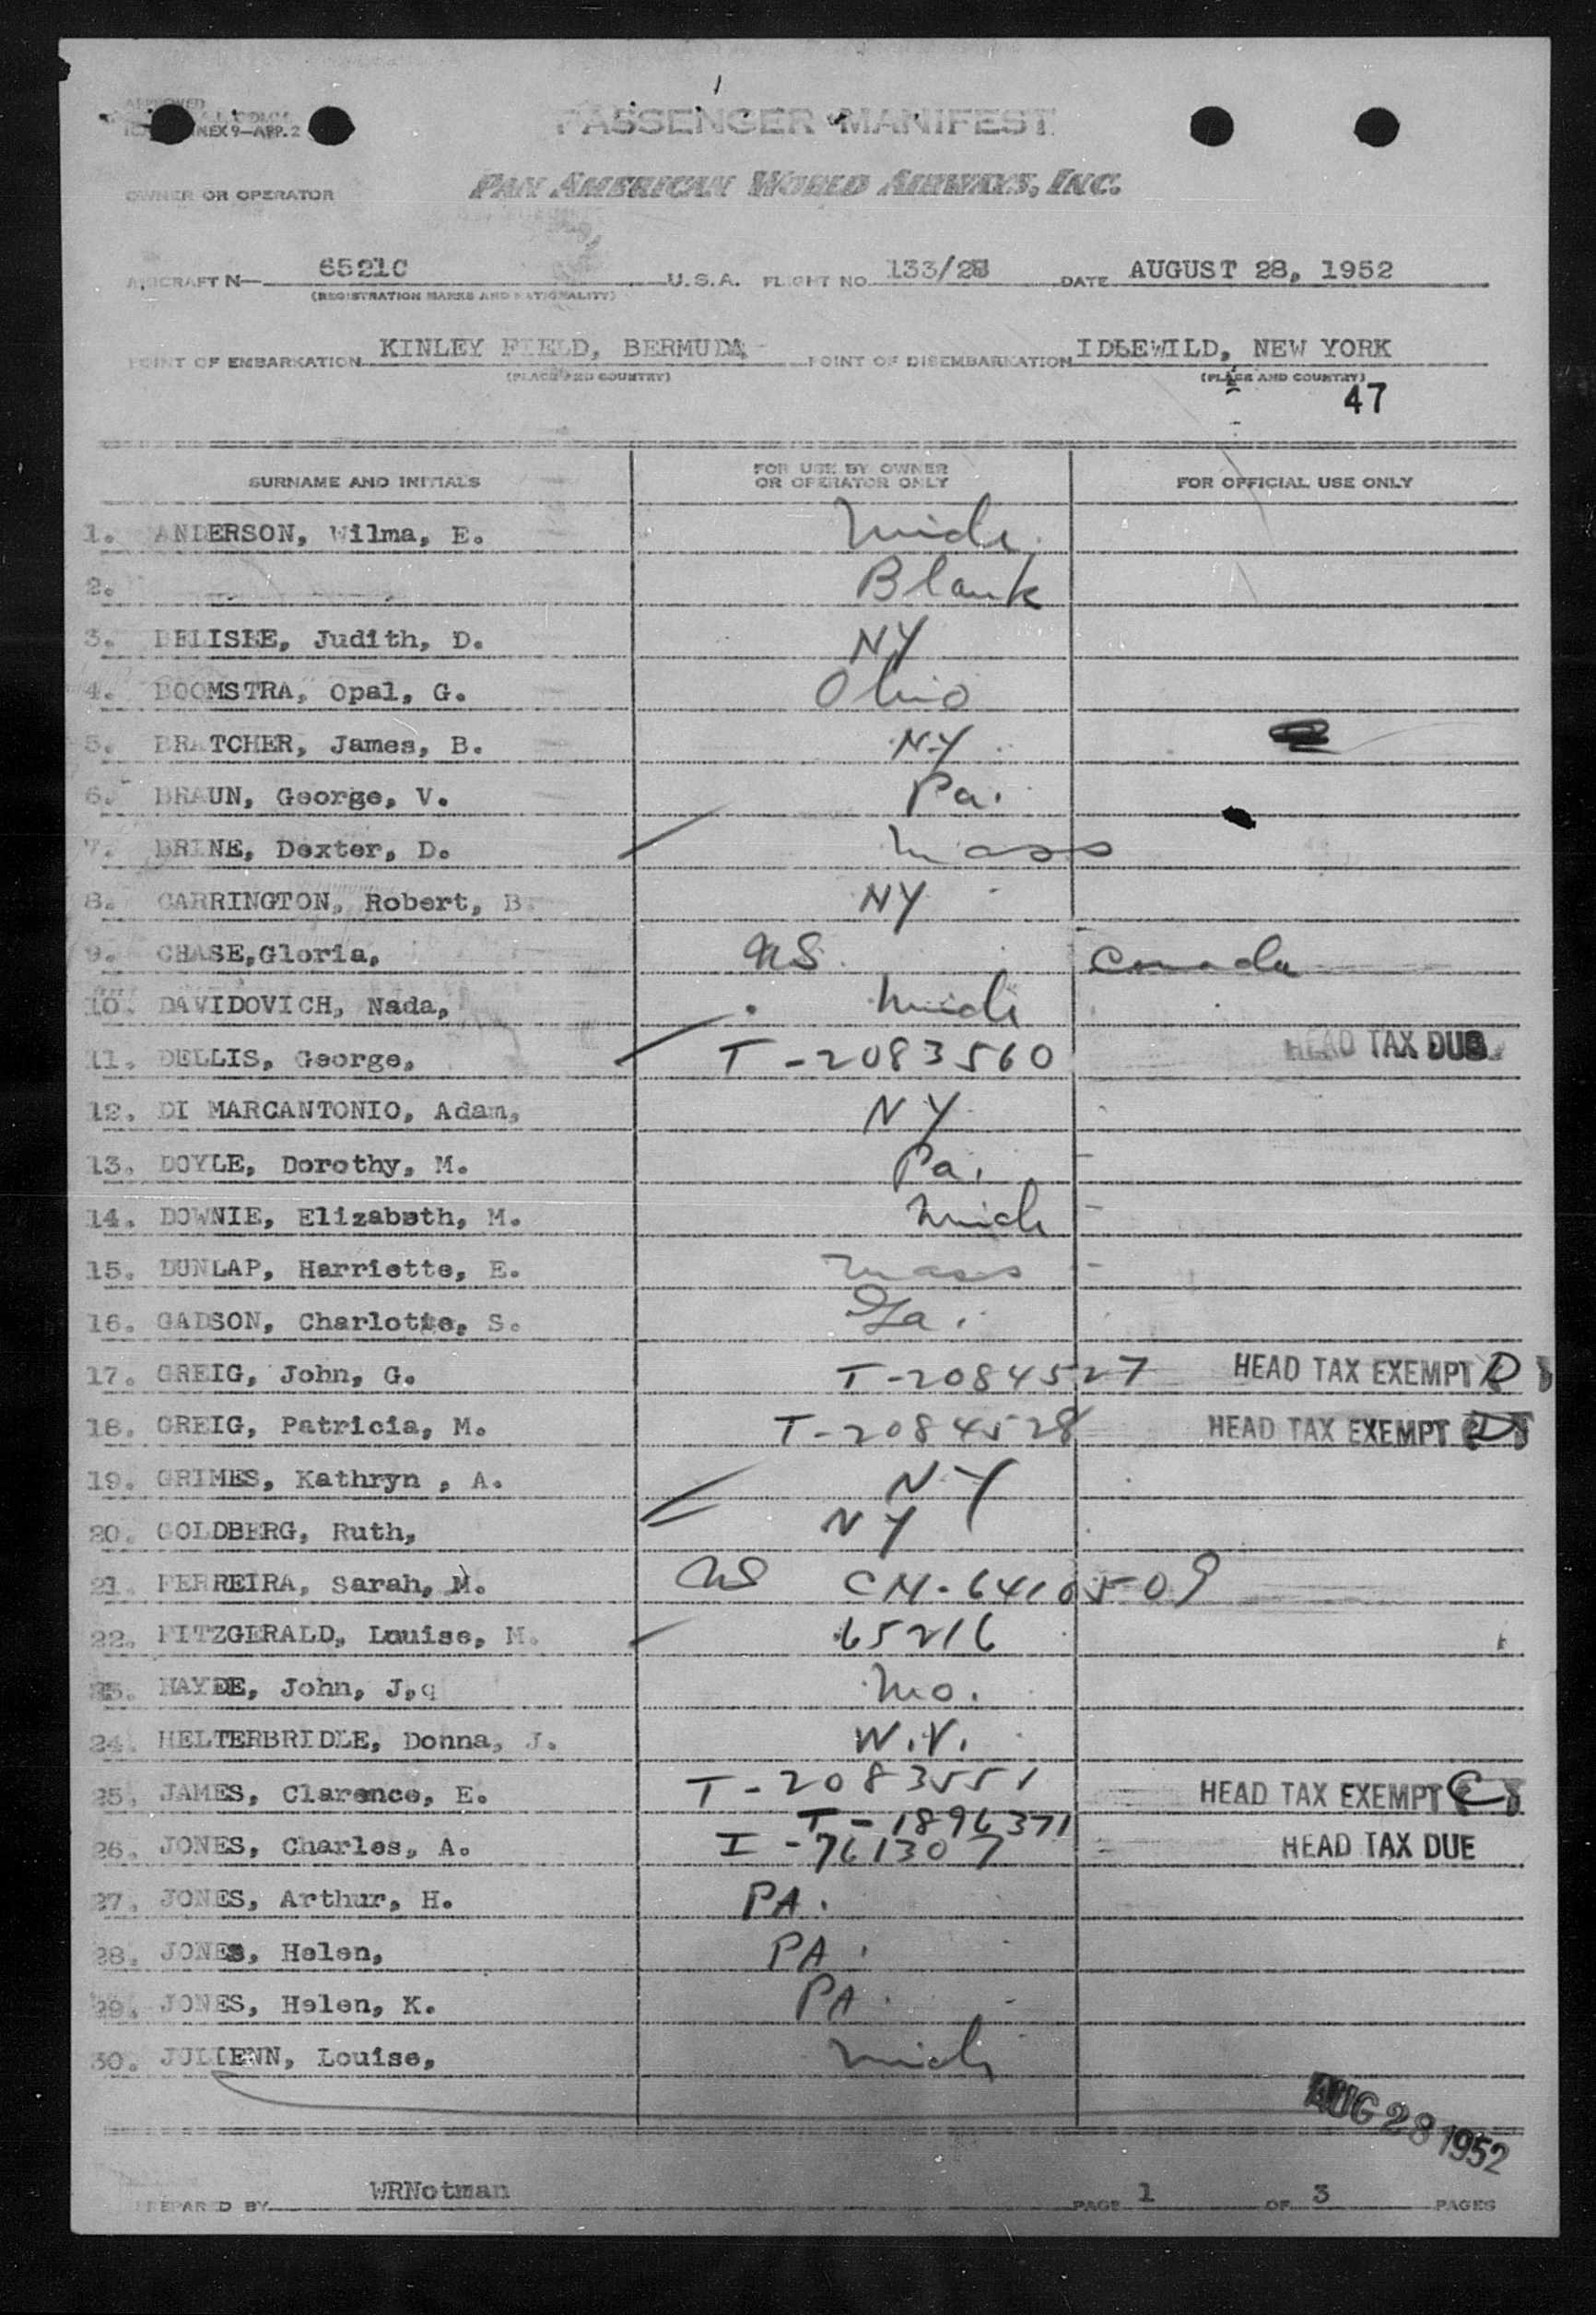 APPROVED
ANNEX 9—APP. 2
PASSENGER MANIFEST
OWNER OR OPERATOR PAN AMERICAN WORLD AIRWAYS, INC.
AIRCRAFT N— 6521C U.S.A. FLIGHT NO. 133/28 DATE AUGUST 28, 1952
(REGISTRATION MARKS AND NATIONALITY)
POINT OF EMBARKATION KINLEY FIELD, BERMUDA POINT OF DISEMBARKATION IDLEWILD, NEW YORK
(PLACE AND COUNTRY) (PLACE AND COUNTRY)
47
SURNAME AND INITIALS FOR USE BY OWNER OR OPERATOR ONLY FOR OFFICIAL USE ONLY
1. ANDERSON, Wilma, E. Mich.
2. Blank
3. BELISLE, Judith, D. NY
4. BOOMSTRA, Opal, G. Ohio
5. BRATCHER, James, B. NY
6. BRAUN, George, V. Pa.
7. BRINE, Dexter, D. Mass
8. CARRINGTON, Robert, B. NY
9. CHASE,Gloria, NS. Canada
10. DAVIDOVICH, Nada, Mich
11. DELLIS, George, T-2083560 HEAD TAX DUE
12. DI MARCANTONIO, Adam, NY
13. DOYLE, Dorothy, M. Pa.
14. DOWNIE, Elizabeth, M. Mich
15. DUNLAP, Harriette, E. Mass
16. GADSON, Charlotte, S. Ga.
17. GREIG, John, G. T-2084527 HEAD TAX EXEMPT D
18. GREIG, Patricia, M. T-2084528 HEAD TAX EXEMPT
19. GRIMES, Kathryn , A. NY
20. GOLDBERG, Ruth, NY
21. FERREIRA, Sarah, M. NS CN-6410509
22. FITZGERALD, Louise, M. 65216
23. HAYDE, John, J. Mo.
24. HELTERBRIDLE, Donna, J. W.V.
25. JAMES, Clarence, E. T-2083551 HEAD TAX EXEMPT C
T-1896371
26. JONES, Charles, A. I-761307 HEAD TAX DUE
27. JONES, Arthur, H. PA.
28. JONES, Helen, PA.
29. JONES, Helen, K. PA.
30. JULIENN, Louise, Mich
AUG 28 1952
PREPARED BY WRNotman PAGE 1 OF 3 PAGES